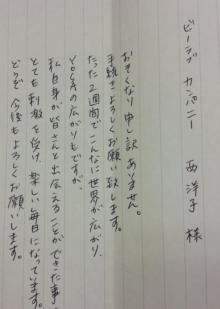 ビーラブカンパニー 西洋子様
おそくなり申し訳ありません。
手続きよろしくお願い致します。
たった2週間でこんなに世界が広がり、
YOGAの広がりもですが、
私自身が皆さんと出会えることができた事、
とても刺激を受け、楽しい毎日になっています。
どうぞ今後もよろしくお願いします。